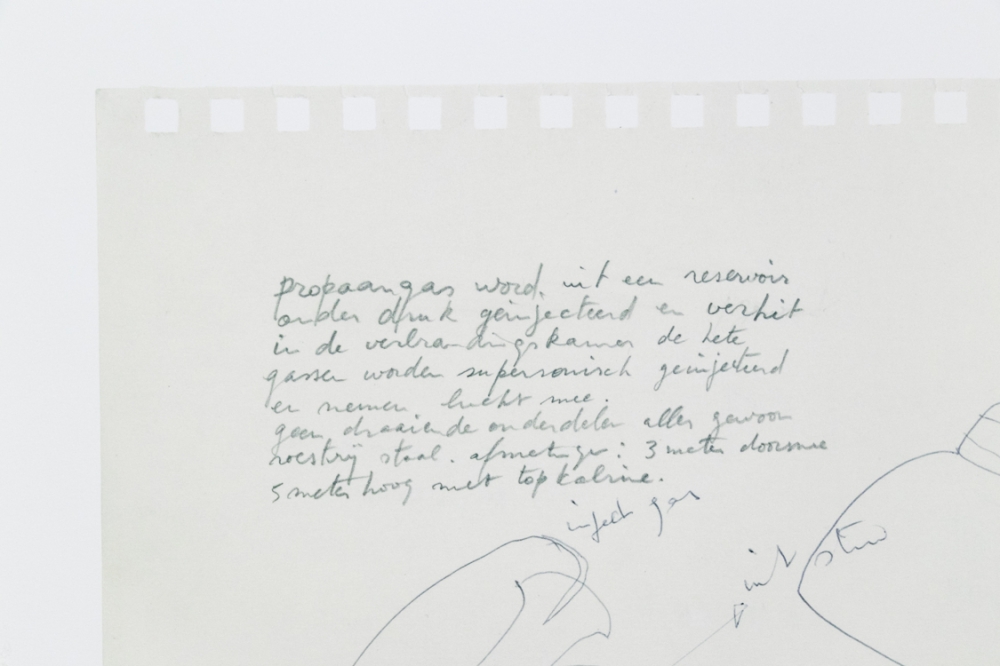 propaangas word. uit een reservoir
onder druk geinjecteerd en verhit
in de verbrandingskamer de hete
gassen worden supersonisch geinjecteerd
en nemen lucht mee.
geen draaiende onderdelen alles gewoon
roestvrij staal. afmetingen: 3 meter doorsnee
5 meter hoog met topkabine.
inject gas
uit